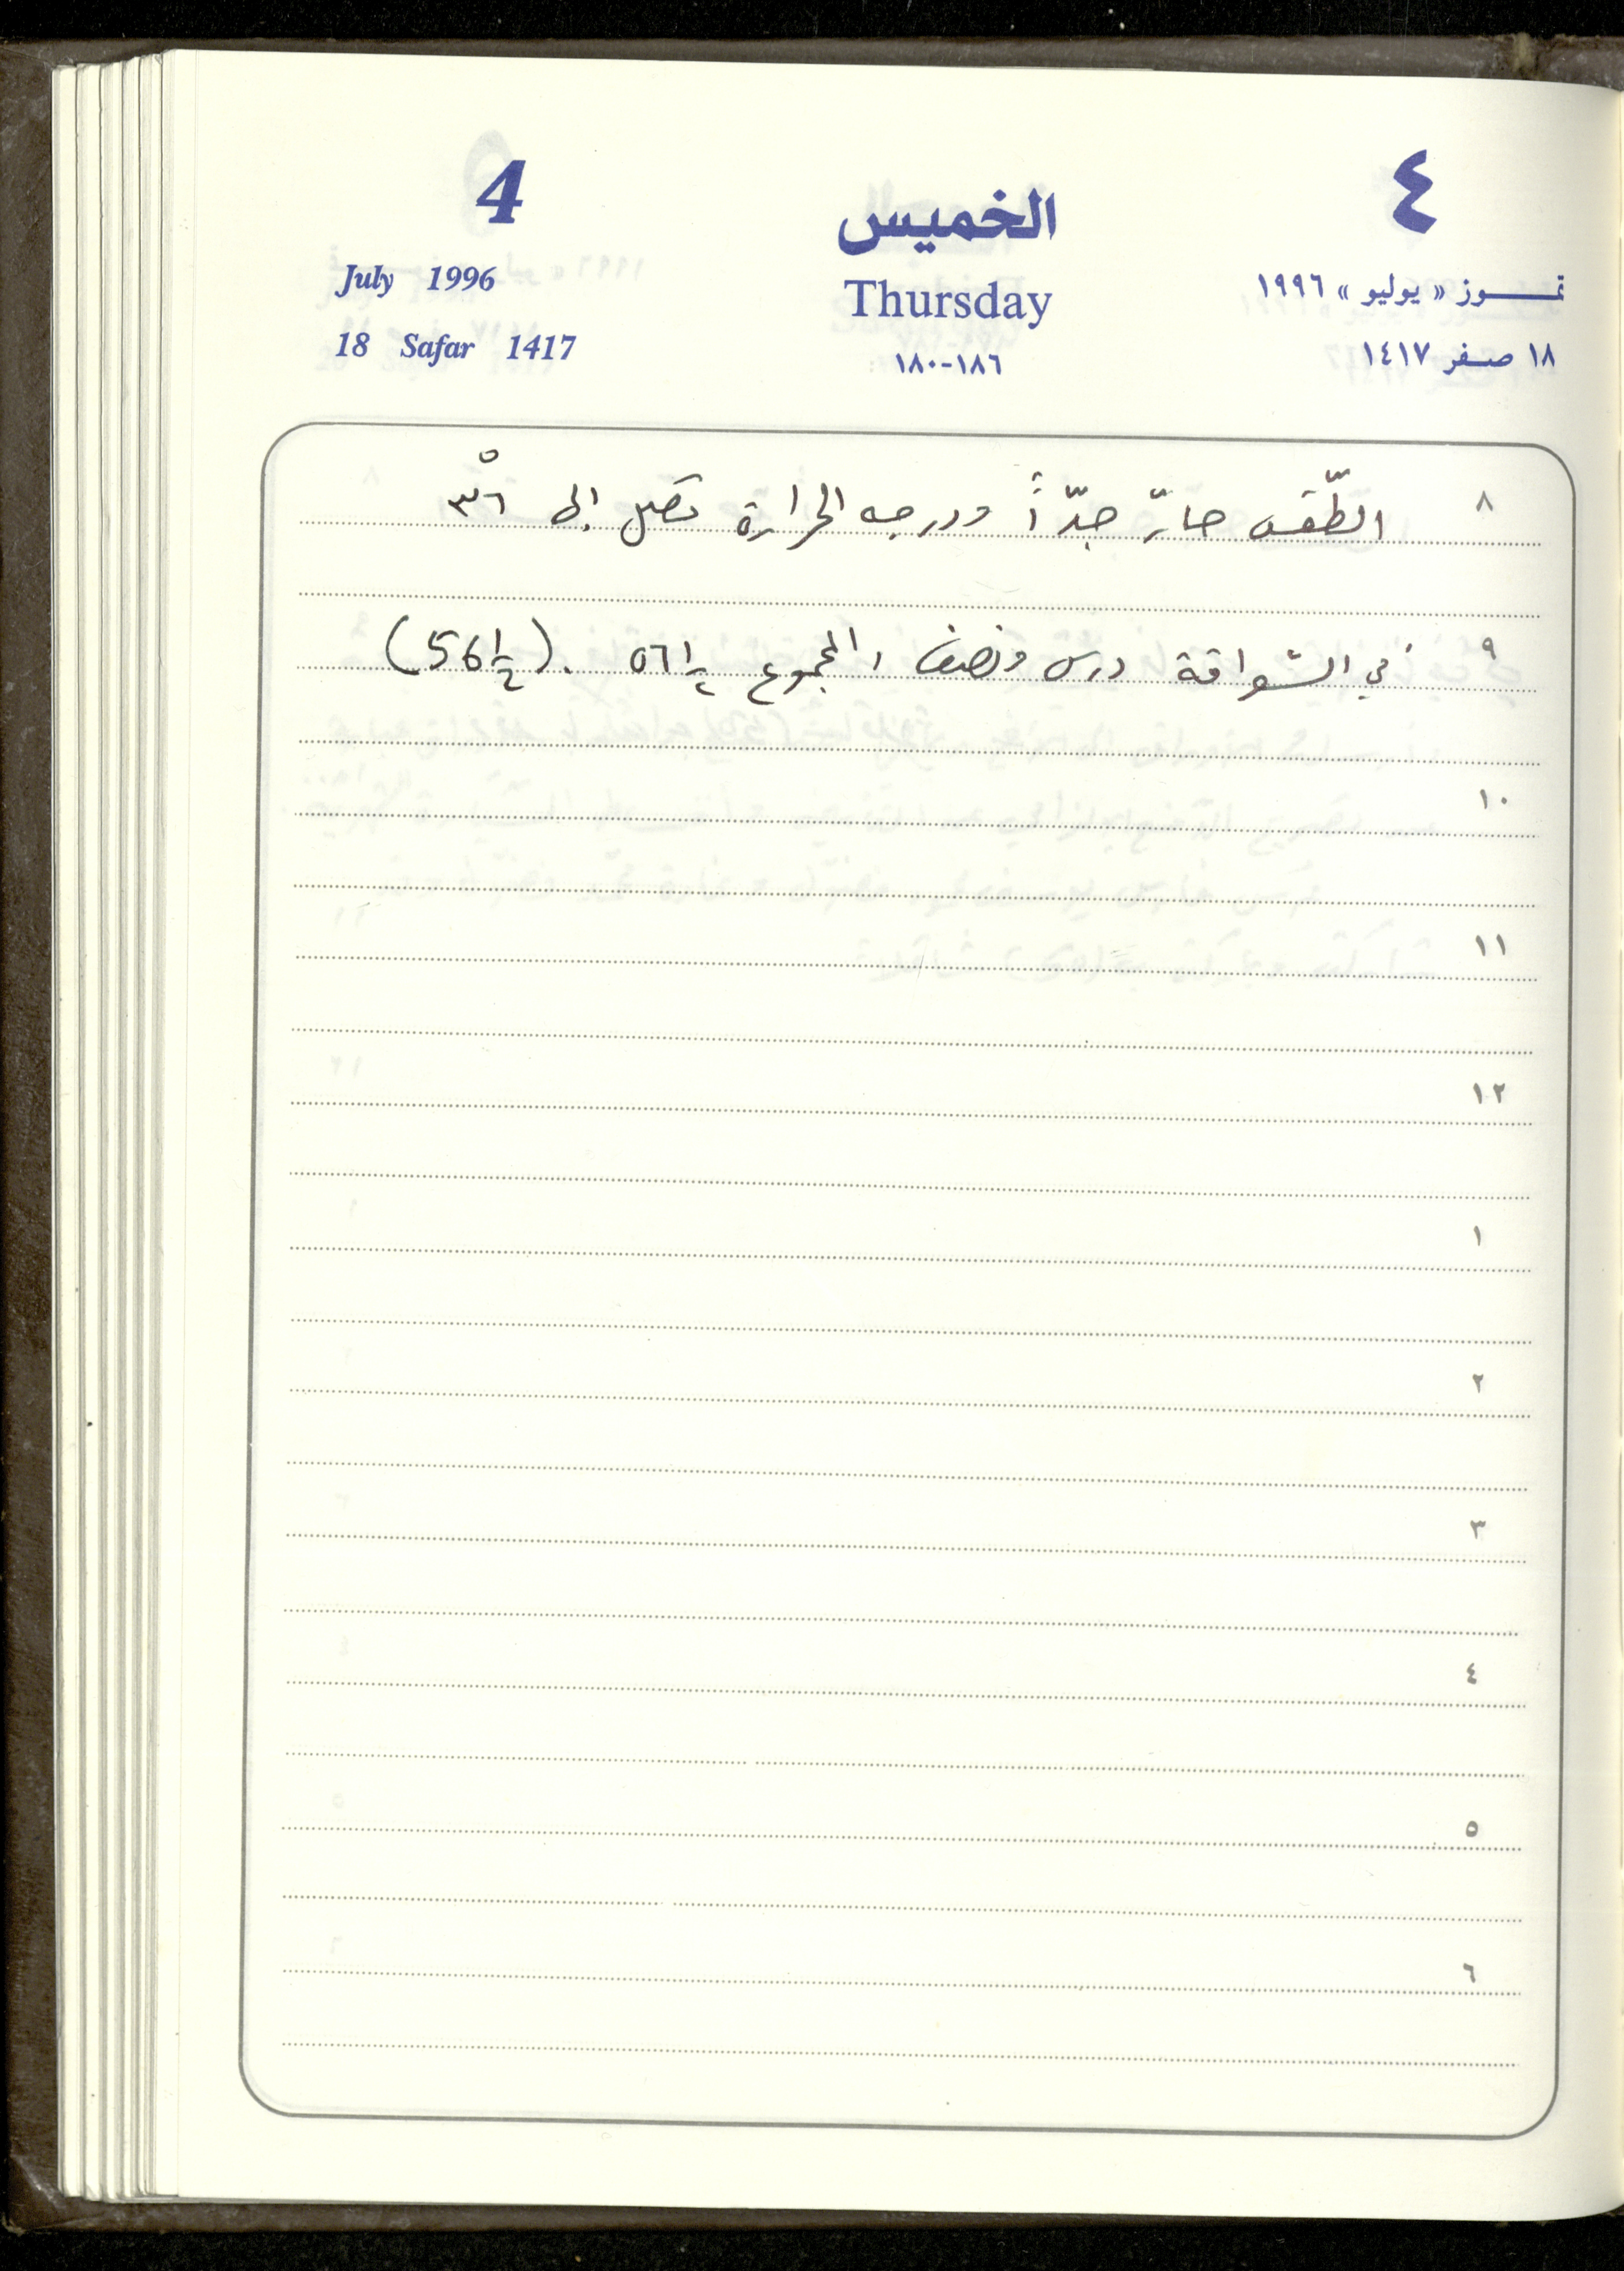 4 الخميس ٤
July 1996 Thursday تمـــوز « يوليو » ١٩٩٦
18 Safar 1417 ١٨٦-١٨٠ ١٨ صفر ١٤١٧
٨ الطّقس حارّ جدّاً ودرجه الحرارة تصل إلى ٣٦°
٩ في السّواقة درس ونصف ، المجموع ٥٦½ . (56½)
١٠
١١
١٢
١
٢
٣
٤
٥
٦